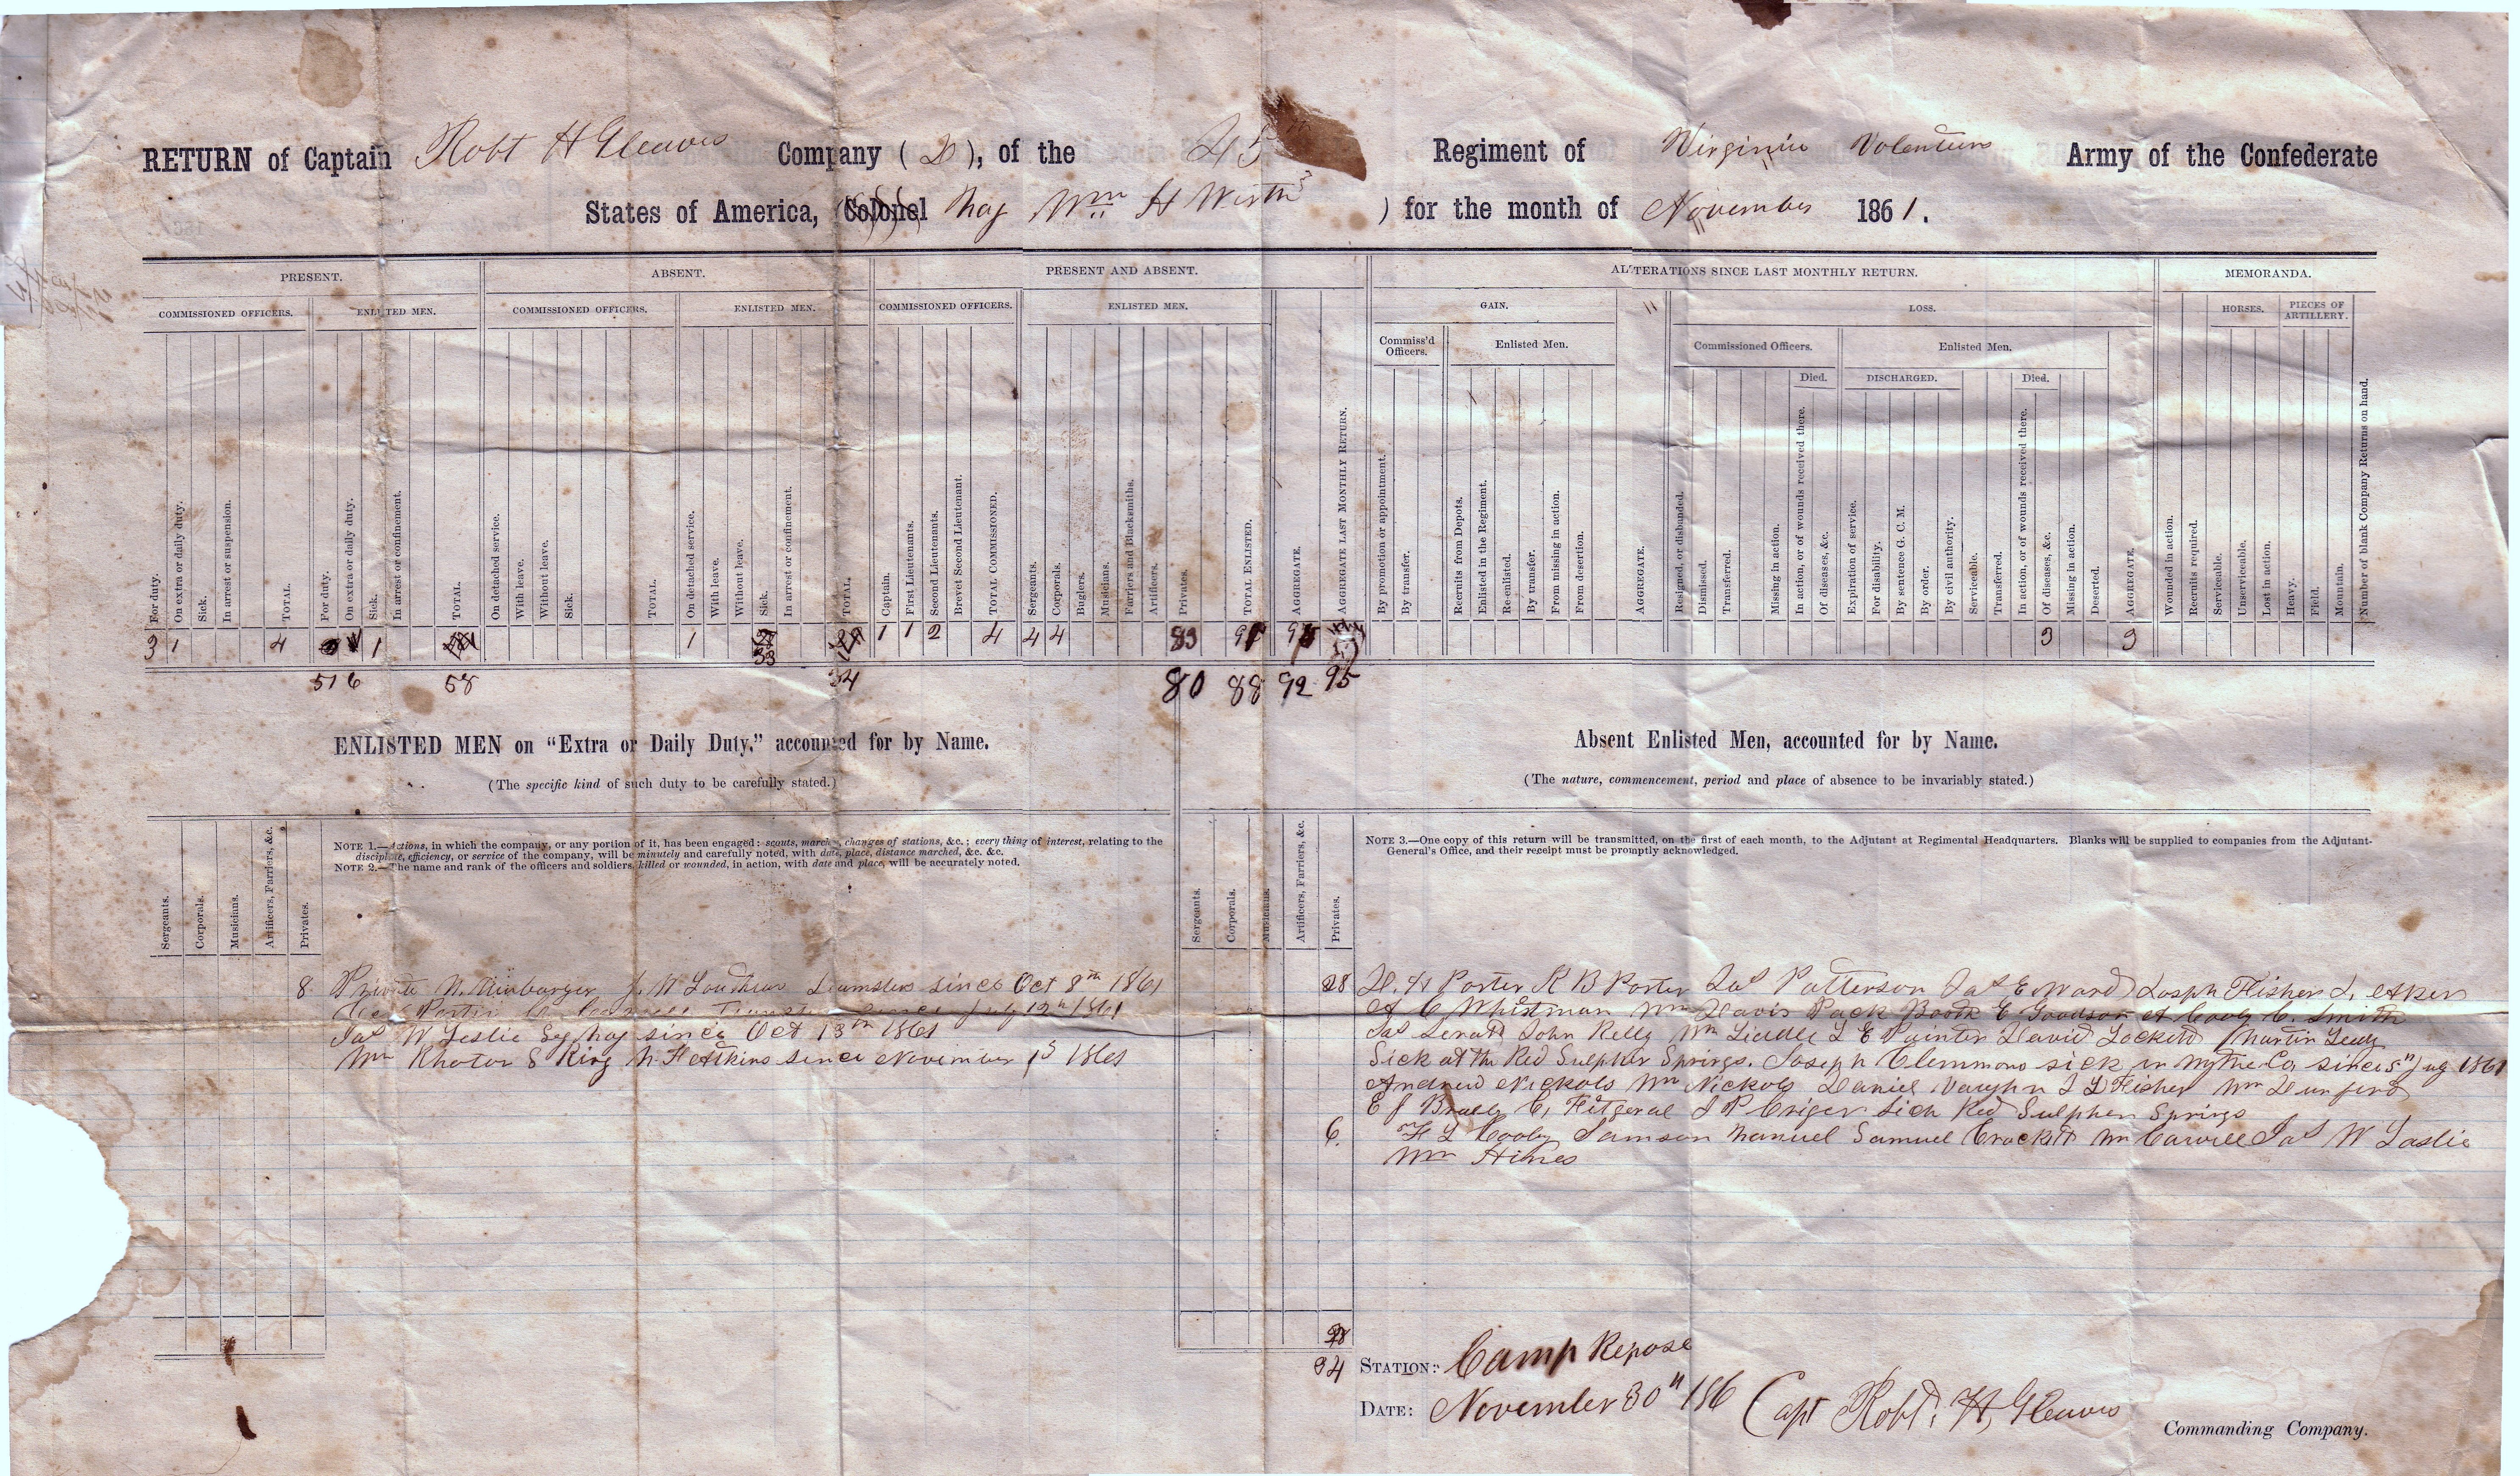 RETURN of Captain Robt H Gleaves Company ( D ), of the 45th Regiment of Virginia Volenturs Army of the Confederate
States of America, (Colonel Maj Wm H Werth ) for the month of November 1861.
PRESENT. ABSENT. PRESENT AND ABSENT. ALTERATIONS SINCE LAST MONTHLY RETURN. MEMORANDA.
COMMISSIONED OFFICERS. ENLISTED MEN. COMMISSIONED OFFICERS. ENLISTED MEN. COMMISSIONED OFFICERS. ENLISTED MEN. GAIN. LOSS. HORSES. PIECES OF ARTILLERY.
Commiss'd Officers. Enlisted Men. Commissioned Officers. Enlisted Men.
Died. DISCHARGED. Died.
For duty.
On extra or daily duty.
Sick.
In arrest or suspension.
TOTAL.
For duty.
On extra or daily duty.
Sick.
In arrest or confinement.
TOTAL.
On detached service.
With leave.
Without leave.
Sick.
TOTAL.
On detached service.
With leave.
Without leave.
Sick.
In arrest or confinement.
TOTAL.
Captain.
First Lieutenants.
Second Lieutenants.
Brevet Second Lieutenant.
TOTAL COMMISSIONED.
Sergeants.
Corporals.
Buglers.
Musicians.
Farriers and Blacksmiths.
Artificers.
Privates.
TOTAL ENLISTED.
AGGREGATE.
AGGREGATE LAST MONTHLY RETURN.
By promotion or appointment.
By transfer.
Recruits from Depots.
Enlisted in the Regiment.
Re-enlisted.
By transfer.
From missing in action.
From desertion.
AGGREGATE.
Resigned, or disbanded.
Dismissed.
Transferred.
Missing in action.
In action, or of wounds received there.
Of diseases, &c.
Expiration of service.
For disability.
By sentence G. C. M.
By order.
By civil authority.
Serviceable.
Transferred.
In action, or of wounds received there.
Of diseases, &c.
Missing in action.
Deserted.
AGGREGATE.
Wounded in action.
Recruits required.
Serviceable.
Unserviceable.
Lost in action.
Heavy.
Field.
Mountain.
Number of blank Company Returns on hand.
3 1 4 1 1 33 1 1 2 4 4 4 83 91 3 3
51 6 58 34 80 88 92 95
ENLISTED MEN on "Extra or Daily Duty," accounted for by Name.
(The specific kind of such duty to be carefully stated.)
Sergeants.
Corporals.
Musicians.
Artificers, Farriers, &c.
Privates.
NOTE 1.—Actions, in which the company, or any portion of it, has been engaged: scouts, marches, changes of stations, &c.; every thing of interest, relating to the
discipline, efficiency, or service of the company, will be minutely and carefully noted, with date, place, distance marched, &c. &c.
NOTE 2.—The name and rank of the officers and soldiers killed or wounded, in action, with date and place, will be accurately noted.
8. Private N. J. W Teamsters since Oct 8th 1861
Porter since July 12th 1861
Jas W Leslie Sy Maj since Oct 13th 1861
Wm S King N F since November 1st 1861
Absent Enlisted Men, accounted for by Name.
(The nature, commencement, period and place of absence to be invariably stated.)
Sergeants.
Corporals.
Musicians.
Artificers, Farriers, &c.
Privates.
NOTE 3.—One copy of this return will be transmitted, on the first of each month, to the Adjutant at Regimental Headquarters. Blanks will be supplied to companies from the Adjutant-
General's Office, and their receipt must be promptly acknowledged.
28 D. H Porter R B Porter Jas Patterson Jas E Ward Joseph Fisher
A C Whitman Wm Davis Pack Booth E Goodson A Cooly C. Smith
Jas John Kelly Wm Liddle L E Painter David Lockett Martin
Sick at the Red Sulpher Springs. Joseph Clemmons sick in Wythe Co since 5" Aug 1861
Andrew Nickols Wm Nickols Daniel Vaughn J L Fisher Wm Dunford
E J C. Fitzgeral J P Criger Sick Red Sulpher Springs
6. F L Cooly Samson Manuel Samuel Crockett Wm Jas W Laslie
Wm Hines
34
STATION: Camp Repose
DATE: November 30" 186
Capt Robt. H. Gleaves
Commanding Company.